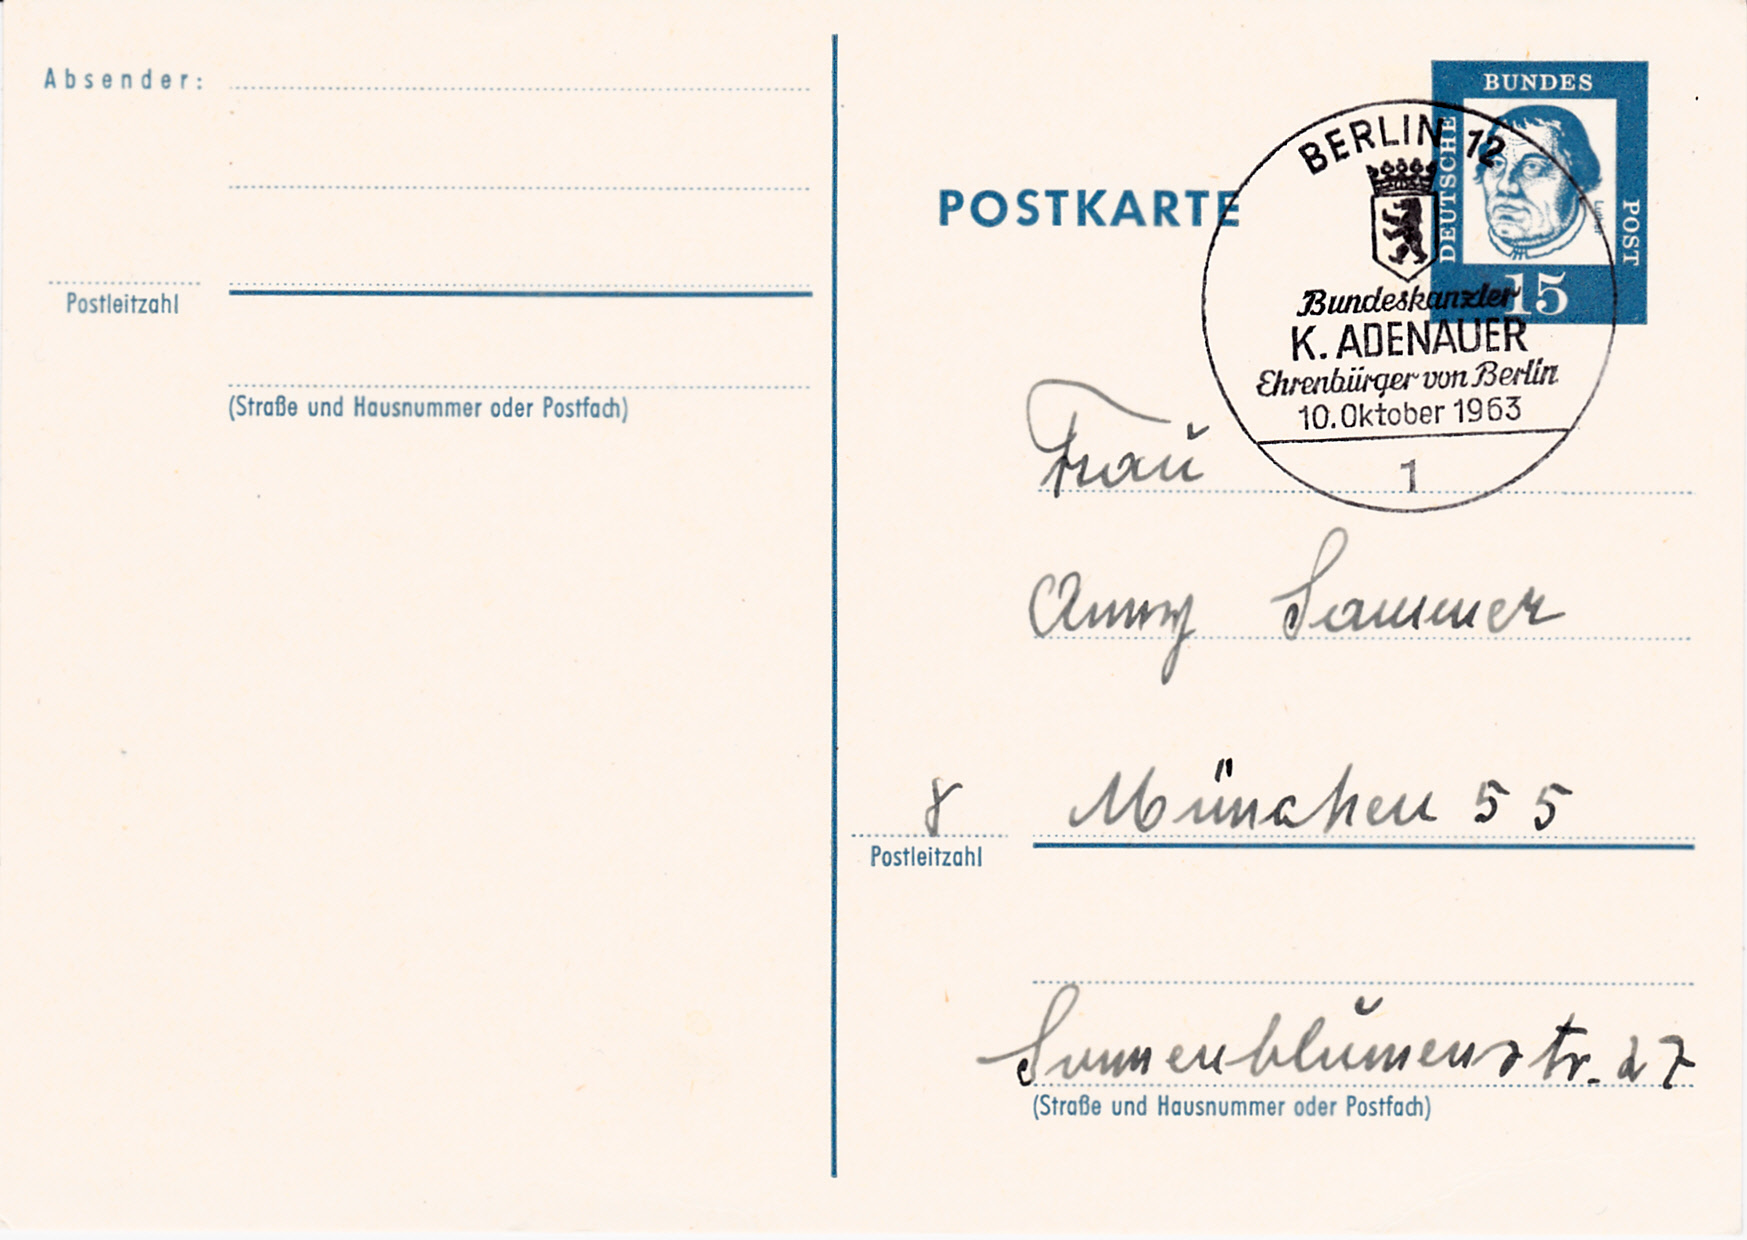 Absender:
Postleitzahl
(Straße und Hausnummer oder Postfach)
POSTKARTE
BUNDES
DEUTSCHE
POST
Luther
15
BERLIN 12
Bundeskanzler
K. ADENAUER
Ehrenbürger von Berlin
10. Oktober 1963
1
Frau
Anny Sammer
8 München 55
Postleitzahl
Sonnenblumenstr. 27
(Straße und Hausnummer oder Postfach)